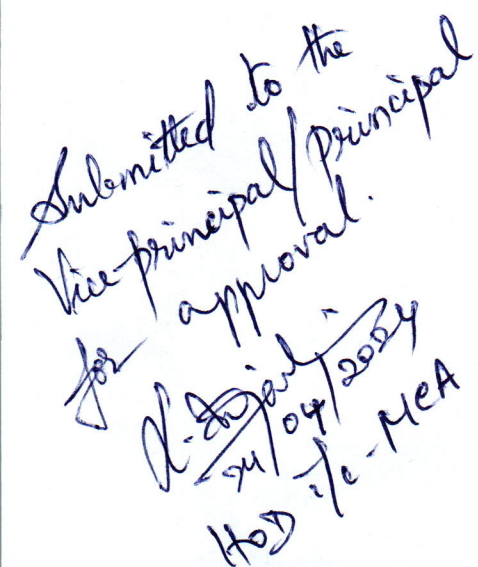 Submitted to the
Vice-principal/principal
for approval.
24/04/2024
HOD i/c - MCA